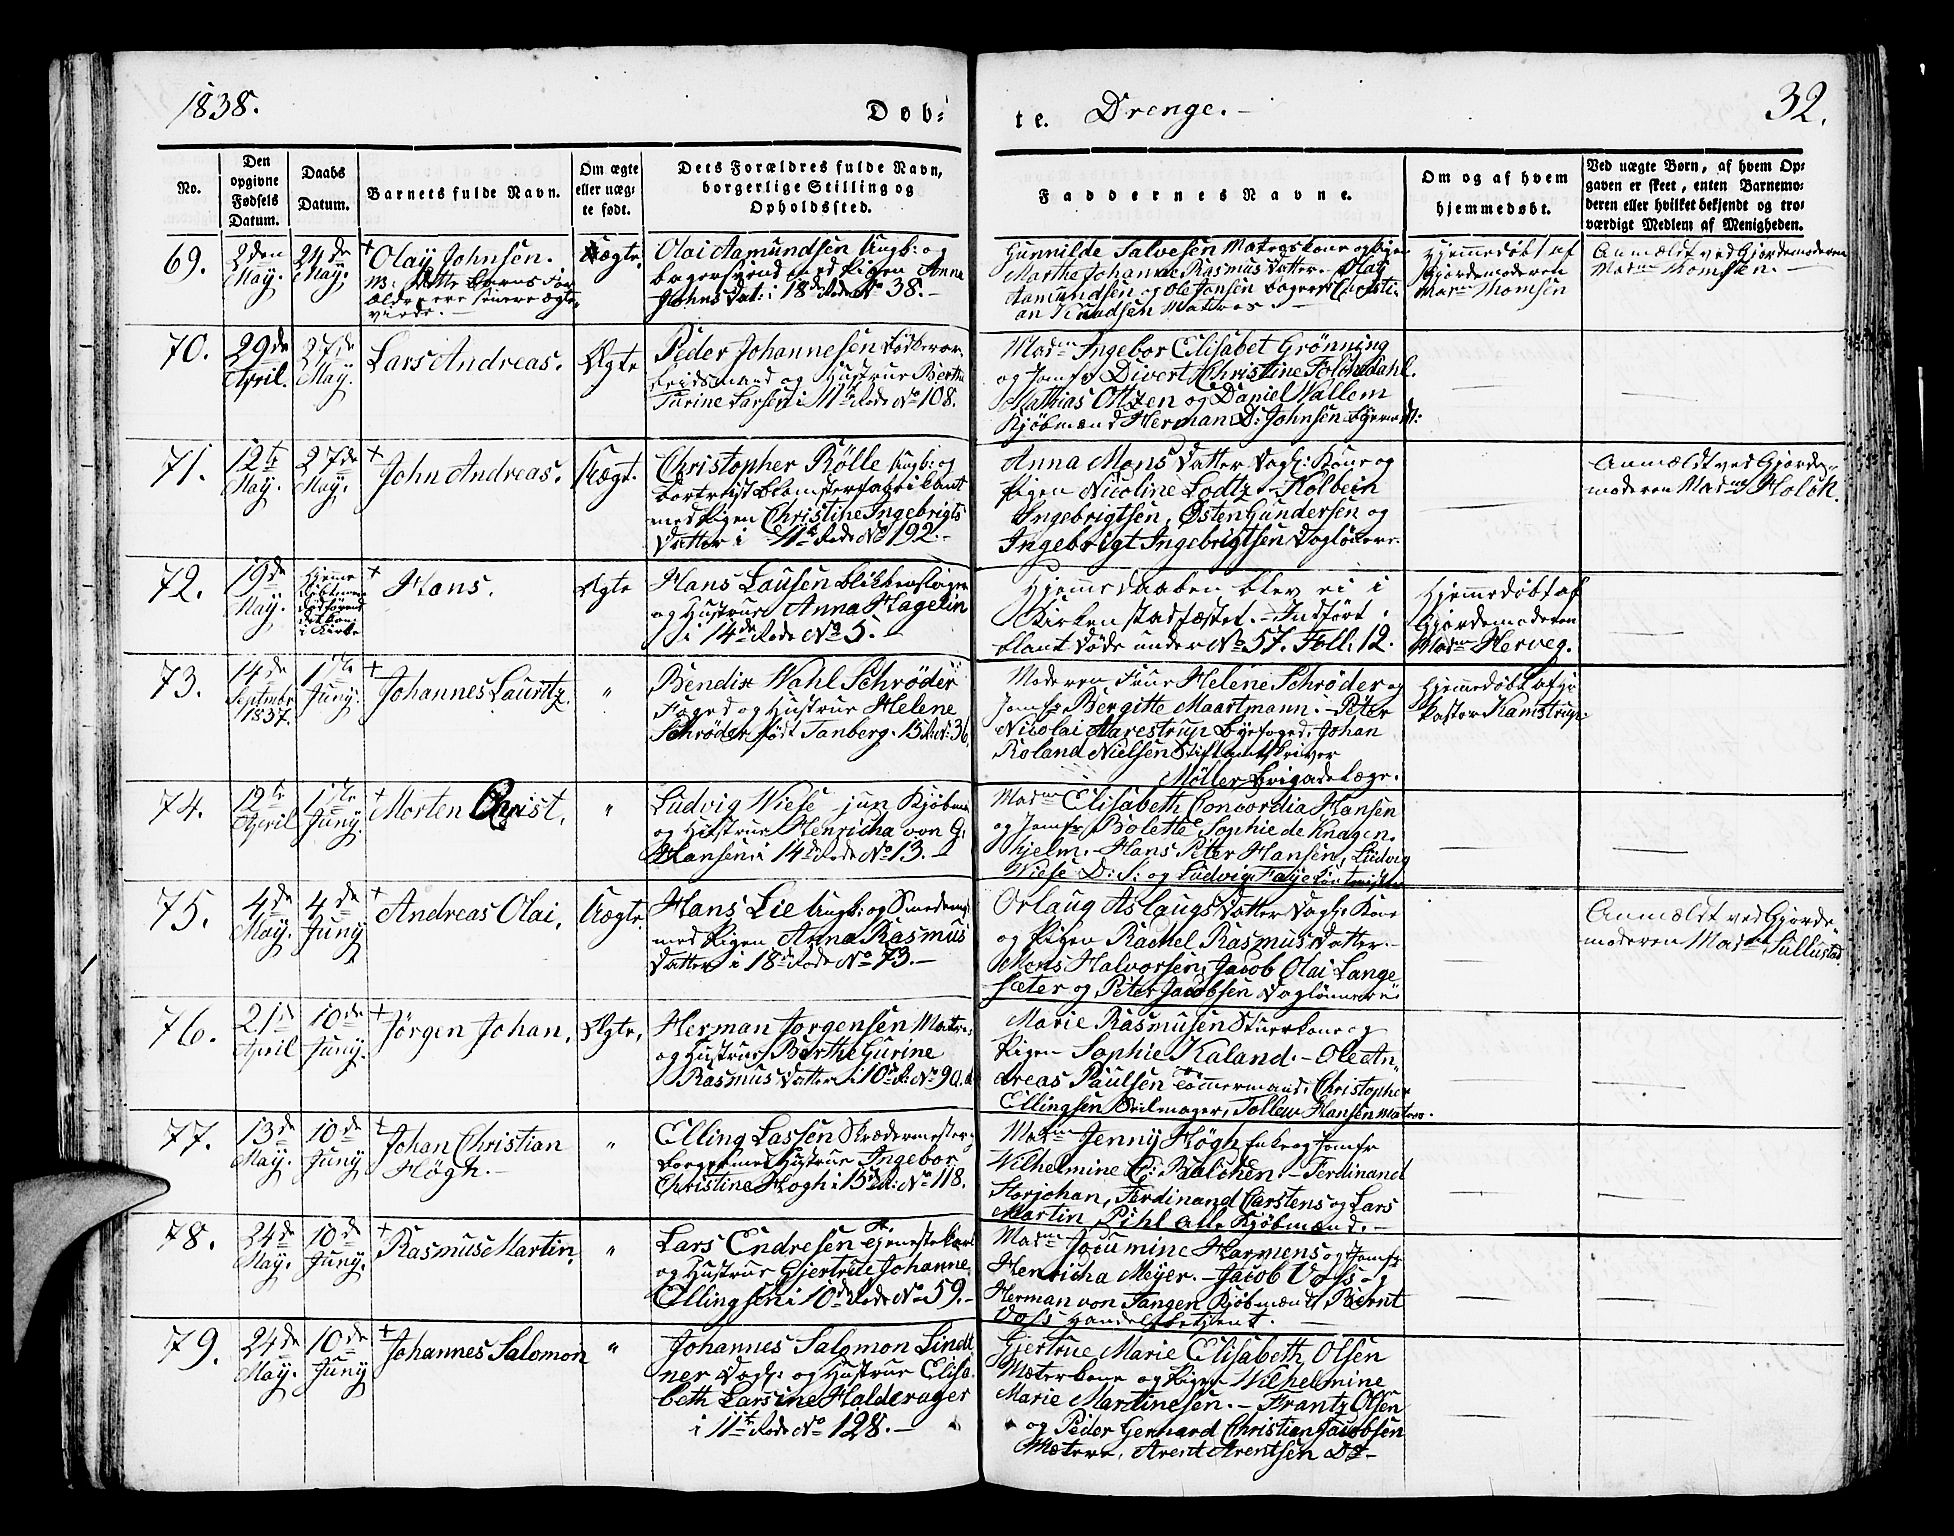 1838.
Døb:
te. Drenge.-
32.
No.
Den opgivne Fødsels Datum.
Daabs Datum.
Barnets fulde Navn.
Om ægte eller uægte født.
Dets Forældres fulde Navn, borgerlige Stilling og Opholdssted.
Faddernes Navne.
Om og af hvem hjemmedøbt.
Ved uægte Børn, af hvem Opgaven er skeet, enten Barnemoderen eller hvilket bekjendt og troværdigt Medlem af Menigheden.
69.
2den May.
24de May.
+ Olay Johnsen.
Uægte.
Olai Aamundsen Ungk: og
bagersvend med Pigen Anne
Johns Dat: i 18de Rode No 38.-
Gunnilde Salvesen Matroskone og Pigen
Marthe Johanne Rasmus Datter. Olay
Aamundsen og Ole Jonsen bagere Christi-
an Knudsen Matros.-
Hjemmedøbt af
Gjordemoderen
Madme Thomsen
Anmældt ved Gjordemoderen
Madme Thomsen.-
70.
29de April.
27de May.
Lars Andreas.
Ægte
Peder Johannesen
beidsmand og Hustrue Berthe
Turine Larsen i 11te Rode No 108.
Madme Ingebor Elisabet Grønning
og Jomfr Divert Christine
Mathias Ottzen og Daniel Wallem
Kjøbmænd Herman D: Johnsen
71.
12te May.
27de May.
+ John Andreas.
Uægt.
Christopher Rölle Ungk: og
Blomsterfabrikant
med Pigen Christine Ingebrigts
Datter i 11te Rode No 192.-
Anna Mons Datter Dagl: Kone og
Pigen Nicoline Lodtz.- Kolbein
Ingebrigtsen, Østen Gundersen og
Ingebrigt Ingebrigtsen Dagløbere.
Anmældt ved Gjorde-
moderen Madme Holck.
72.
19de May.
+ Hans.
Ægte
Hans Lausen Blikkenslager
og Hustrue Anna Hagelin
i 14de Rode No 5.-
Hjemmedaaben blev ei i
Kirken stadfæstet.- Indført
blant Døde under No 57. Foll: 12.
Hjemmedøbt af
Gjordemoderen
Madme Herveg.
73.
14de Septmbr 1837.
1ste Juny.
+ Johannes Lauritz.
"
Bendix Wahl Schrøder
Foged og Hustrue Helene
Schrøder født Tanberg. 15 R: N: 36.
Moderen Frue Helene Schrøder og
Jomfr Bergitte Maartmann.- Peter
Nicolai Harestrup Byefoged, Johan
Roland Nielsen Stiftamtskriver
Møller Brigadelæge.
Hjemmedøbt af
Pastor Kamstrup.
74.
12te April
1ste Juny.
+ Morten Christ.
"
Ludvig Wiese jun Kjøbm
og Hustrue Henricha von G:
Hansen i 14de Rode No 13.-
Madme Elisabeth Concordia Hansen
og Jomfr Bolette Sophie de Knagen-
hjelm.- Hans Peter Hansen, Ludvig
Wiese D: S: og Ludvig Faye Contorister
75.
4de May.
4de Juny
+ Andreas Olai.
Uægte.
Hans Lie Ungk: og Smedsvend
med Pigen Anna Rasmus
Datter i 18de Rode No 73.-
Orlaug Aslaugs Datter Dagl: Kone
og Pigen Rachel Rasmus Datter.-
Mons Halvorsen, Jacob Olai Lange
sæter og Peter Jacobsen Daglønnere
Anmældt ved Gjorde-
moderen Madme Sullustad.
76.
21de April
10de Juny.
+ Jörgen Johan.
Ægte.
Herman Jorgensen Matr:
og Hustrue Berthe Gurine
Rasmus Datter i 10de R: No 90.a
Marie Rasmusen Stuerkone og
Pigen Sophie Kaland.- Ole An-
dreas Paulsen Tømmermand, Christopher
Ellingsen Seilmager, Tollew Hansen Matros.
77.
13de May.
10de Juny
+ Johan Christian
Högh.-
"
Elling Lassen Skrædermester,
Borger med Hustrue Ingebor
Christine Hogh i 15de R: No 118.
Madme Jenny Högh Enke og Jomfr
Wilhelmine C: Balchen.- Ferdinand
Storjohan, Ferdinand Carstens og Lars
Martin Pihl alle Kjøbmænd.-
78.
24de May.
10de Juny.
+ Rasmus Martin.
"
Lars Endresen Tjenestekarl
og Hustrue Gjertrue Johanne
Ellingsen i 10de Rode No 59.-
Madme Joeumine Harmens og Jomfr
Henricha Meyer.- Jacob Voss og
Herman von Tangen Kjøbmænd, Bernt
Voss Handelsbetjent.
79.
24de May.
10de Juny
+ Johannes Salomon
"
Johannes Salomon Lindt
ner Dagl: og Hustrue Elisa
beth Larsine Halderager
i 11te Rode No 128.-
Gjertrue Marie Elisabeth Olsen
Mæterkone og Pigen Wilhelmine
Marie Martinesen.- Frantz Olsen
og Peder Gerhard Christian Jacobsen
Mætere, Arent Arentsen D:-